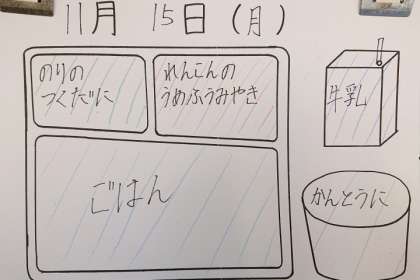 11月 15日(月)
のりの
つくだに
れんこんの
うめふうみやき
牛乳
ごはん
かんとうに